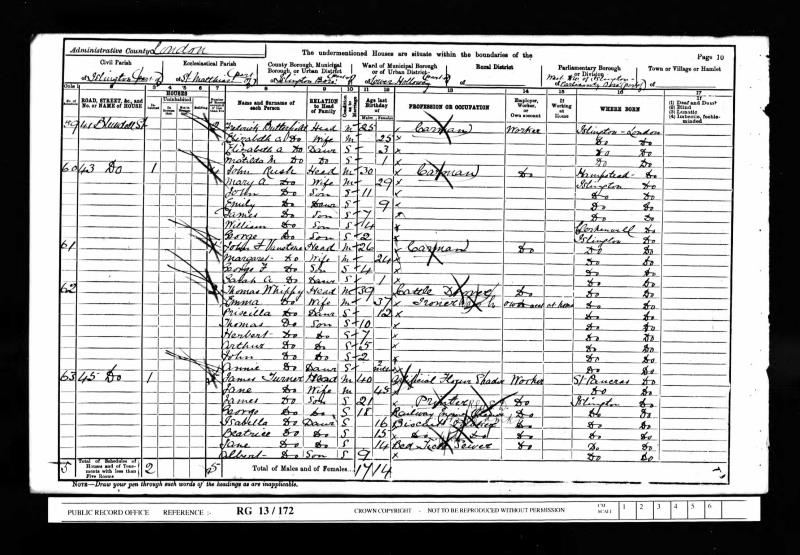 Administrative County London
The undermentioned Houses are situate within the boundaries of the
Page 10
Civil Parish
Ecclesiastical Parish
County Borough, Municipal Borough, or Urban District
Ward of Municipal Borough or of Urban District
Rural District
Parliamentary Borough or Division
Town or Village or Hamlet
of Islington part of
of St Matthias part of
of Islington
of Lower Holloway part of
of
Cols. 1 2 3 4 5 6 7 8 9 10 11 12 13 14 15 16 17
ROAD, STREET, &c., and No. or NAME of HOUSE
HOUSES
Name and Surname of each Person
RELATION to Head of Family
Age last Birthday of
PROFESSION OR OCCUPATION
Employer, Worker, or Own account
If Working at Home
WHERE BORN
(1) Deaf and Dumb
(2) Blind
(3) Lunatic
(4) Imbecile, feeble-minded
59 41 Blundell St Frederick Butterfield Head M 25 Carman Worker Islington London
Elizabeth A Do Wife M 25 Do Do
Elizabeth A Do Daur S 3 Do Do
Matilda M Do Do S 1 Do Do
60 43 Do 1 John Rush Head M 30 Carman Do Hampstead Do
Mary A Do Wife M 29 Islington Do
John Do Son S 11 Do Do
Emily Do Daur S 9 Do Do
James Do Son S 7 Do Do
William Do Son S 4 Clerkenwell Do
George Do Son S 2 Islington Do
61 John F Head M 26 Carman Do Do Do
Margaret Do Wife M 24 Do Do
George F Do Son S 4 Do Do
Sarah A Do Daur S 1 Do Do
62 Thomas Whippy Head M 39 Cattle Drover Do Do Do
Emma Do Wife M 37 Ironer own acct at home Do Do
Priscilla Do Daur S 12 Do Do
Thomas Do Son S 10 Do Do
Herbert Do Do S 7 Do Do
Arthur Do Do S 5 Do Do
John Do Do S 2 Do Do
Annie Do Daur S 2 months Do Do
63 45 Do 1 James Turner Head M 40 Artificial Flower Shader Worker St Pancras Do
Jane Do Wife M 45 Do Do
James Do Son S 21 Printer Do Islington Do
George Do Do S 18 Railway Engine Do Do Do
Isabella Do Daur S 16 Biscuit Do Do Do
Beatrice Do Do S 15 Do Do Do Do
Jane Do Do S 14 Sewer Do Do Do
Albert Do Son S 9 Do Do
5 Total of Schedules of Houses and of Tenements with less than Five Rooms 2 5 Total of Males and of Females 17 14
NOTE—Draw your pen through such words of the headings as are inapplicable.
PUBLIC RECORD OFFICE REFERENCE :- RG 13 / 172 CROWN COPYRIGHT - NOT TO BE REPRODUCED WITHOUT PERMISSION CM SCALE 1 2 3 4 5 6